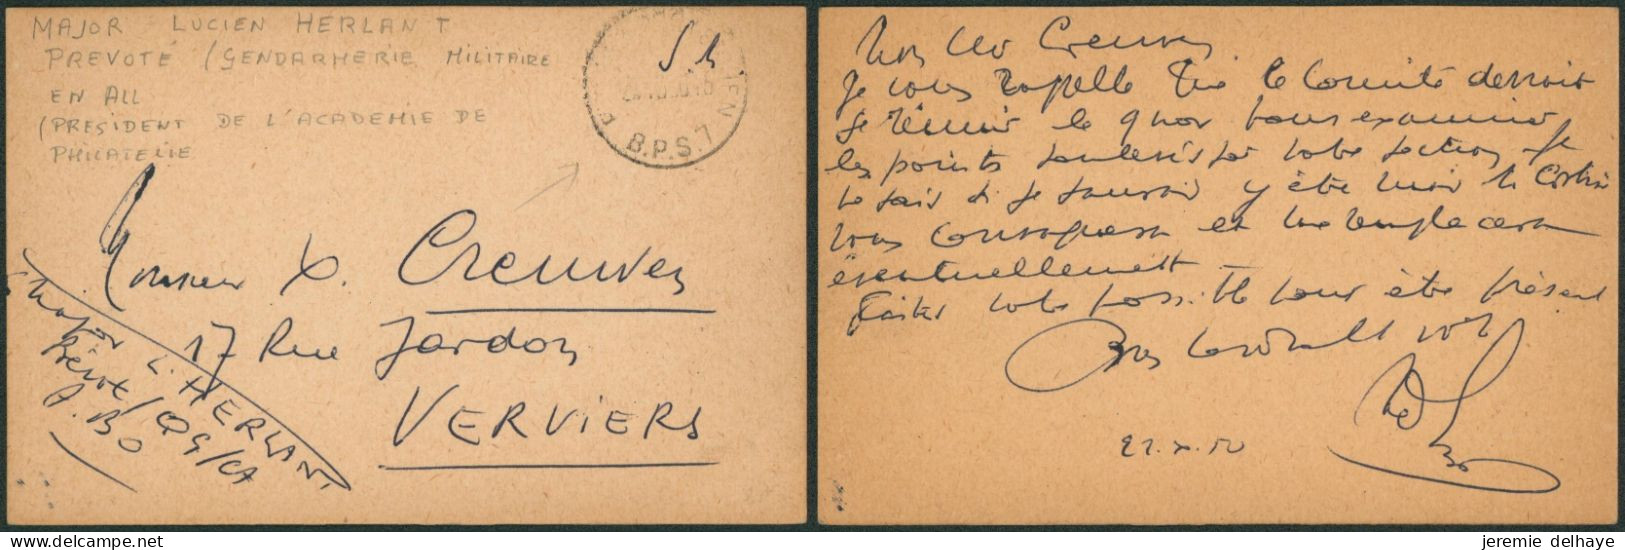 MAJOR LUCIEN HERLANT
PREVOTÉ (GENDARMERIE MILITAIRE
EN ALL
(PRESIDENT DE L'ACADEMIE DE
PHILATELIE
S.M
B.P.S.7
Monsieur X. Creuven
17 Rue Jardon
VERVIERS
Major L. HERLANT
Prévot/QG/CA
P. B O
Mon cher Creuven
Je vous rappelle que le Comité devrait
se réunir le pour examiner
les points soulevés par votre section. Je
ne sais si je pourrai y être
vous et me remplacera
éventuellement
Faites votre possible pour être présent
Bien cordialement vôtre
22.X.50
jeremie delhaye